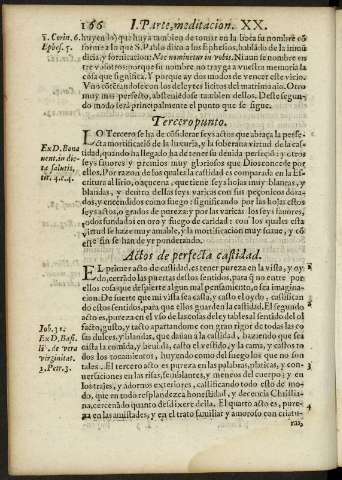 166 I. Parte, meditacion. XX.
1. Corin. 6. huyenlo) que huya tambien de tomar en la boca su nombre cō
Ephes. 5. forme a lo que S. Pablo dixo a los Ephesios, hablādo de la inmū
dicia, y fornicacion: Nec nominetur in vobis. Ni aun se nombre en
tre vosotros: porque su nombre no trayga a vuestra memoria la
cosa que significa. Y porque ay dos modos de vencer este vicio.
Vno cōtentādose con los deleytes licitos del matrimonio. Otro
muy mas perfecto, absteniēdose tambien dellos. Deste segun-
do modo será principalmente el punto que se sigue.
Tercero punto.
LO Tercero se ha de cōsiderar seys actos que abraça la perfe-
Ex D. Bona cta mortificaciō de la luxuria, y la soberana virtud de la cas
uent. in die tidad, quando ha llegado ha de tener su deuida perfeciō: y otros
ta salutis, seys fauores y premios muy gloriosos que Dios concede por
tit. 4. c. 4. ellos. Por razon de los quales la castidad es comparada en la Es
critura al lirio, o açucena, que tiene seys hojas muy blancas, y
blandas, y dentro dellas seys varicas con sus peçoncitos dora-
dos, y encendidos como fuego: significando por las hojas estos
seys actos, o grados de pureza: y por las varitas los seys fauores,
todos fundados en oro y fuego de caridad: con los quales esta
virtud se haze muy amable, y la mortificacion muy suaue, y cō
este fin se han de yr ponderando.
Actos de perfecta castidad.
EL primer acto de castidad, es tener pureza en la vista, y oy-
do, cerrādo las puertas destos sentidos, para q̃ no entre por
ellos cosa que despierte algun mal pensamiento, o sea imagina-
cion. De suerte que mi vista sea casta, y casto el oydo, castifican
do estos sentidos, para que ellos guarden la castidad. El segundo
acto es, pureza en el vso de las cosas deleytables al sentido del ol
Iob. 31. fato, gusto, y tacto apartandome con gran rigor de todas las co
Ex D. Basi. sas dulces, y blandas, que dañan a la castidad, haziendo que sea
li. de vera casta la comida, y beuida, casto el vestido, y la cama, y castos to
virginitat. dos los tocamientos, huyendo como del fuego los que no son
3. Petr. 3. tales. El tercero acto es pureza en las palabras, platicas, y con-
uersaciones en las risas, semblantes, y meneos del cuerpo; y en
los trajes, y adornos exteriores, castificando todo esto de mo-
do, que en todo resplandezca honestidad, y decencia Christia-
na, cercenādo quanto desdixere della. El quarto acto es, pure-
za en las amistades, y en el trato familiar y amoroso con criatu-
ras,